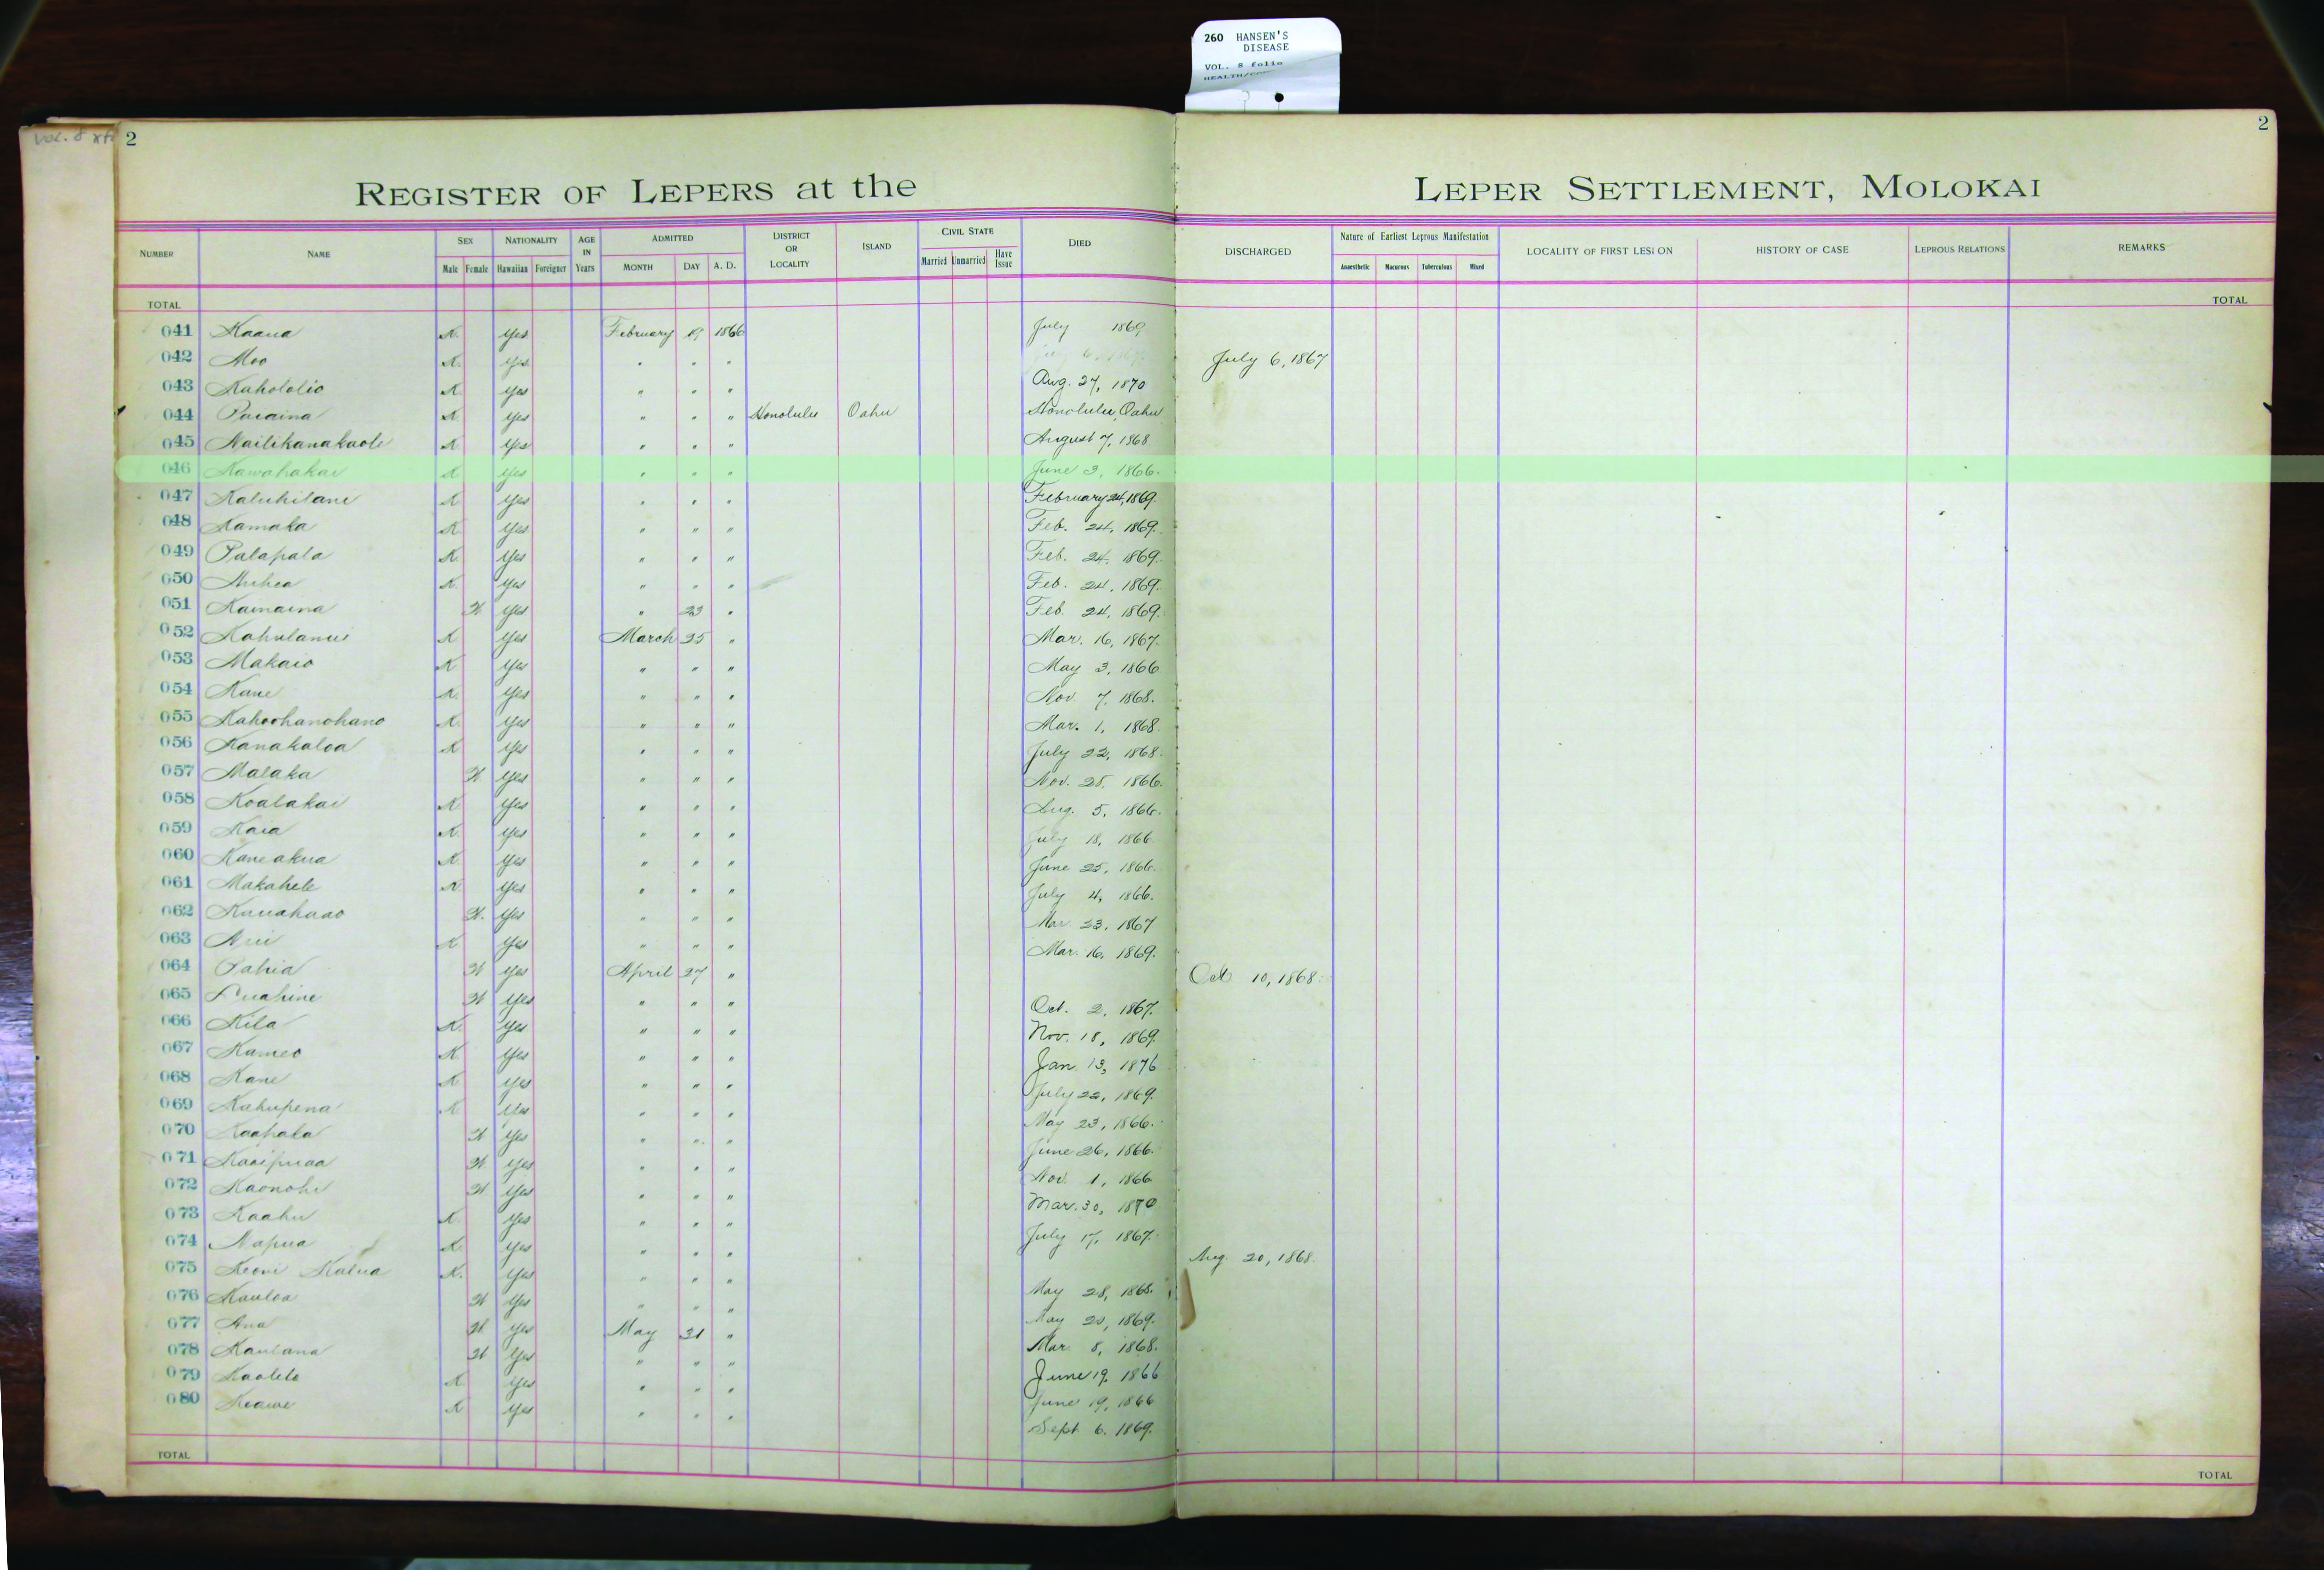 260 HANSEN'S
DISEASE
VOL. 8 folio
Vol. 8
2
2
REGISTER OF LEPERS at the LEPER SETTLEMENT, MOLOKAI
NUMBER NAME SEX NATIONALITY AGE IN Years ADMITTED DISTRICT OR LOCALITY ISLAND CIVIL STATE DIED DISCHARGED Nature of Earliest Leprous Manifestation LOCALITY OF FIRST LESION HISTORY OF CASE LEPROUS RELATIONS REMARKS
Male Female Hawaiian Foreigner MONTH DAY A. D. Married Unmarried Have Issue Anaesthetic Macurous Tuberculous Mixed
TOTAL TOTAL
041 Kaaua K. Yes February 19 1866 July 1869
042 Moo K. Yes " " " July 6, 1867
043 Kahololio K Yes " " " Aug. 27, 1870
044 Puaaina K Yes " " " Honolulu Oahu Honolulu, Oahu
045 Nailikanakaole K Yes " " " August 7, 1868
046 Kawahakai K Yes " " " June 3, 1866.
047 Kaluhilani K Yes " " " February 24, 1869.
048 Kamaka K Yes " " " Feb. 24, 1869.
049 Palapala K. Yes " " " Feb. 24, 1869.
050 Auhea K. Yes " " " Feb. 24, 1869.
051 Kamaina W. Yes " 23 " Feb. 24, 1869.
052 Kahulanui K Yes March 25 " Mar. 16, 1867.
053 Makaio K Yes " " " May 3, 1866
054 Kane K. Yes " " " Nov. 7, 1868.
055 Kahoohanohano K. Yes " " " Mar. 1, 1868.
056 Kanakaloa K Yes " " " July 22, 1868.
057 Malaka W Yes " " " Nov. 28, 1866.
058 Koalakai K Yes " " " Aug. 5, 1866.
059 Kaia K. Yes " " " July 18, 1866.
060 Kaneakua K. Yes " " " June 25, 1866.
061 Makahele K. Yes " " " July 4, 1866.
062 Kauahaao W. Yes " " " Mar. 23, 1867
063 Aui K Yes " " " Mar. 16, 1869.
064 Pahia W Yes April 27 " Oct 10, 1868.
065 Puahine W Yes " " " Oct. 2, 1867.
066 Kila K. Yes " " " Nov. 18, 1869.
067 Kameo K Yes " " " Jan 13, 1876
068 Kane K Yes " " " July 22, 1869.
069 Kahupena K Yes " " " May 23, 1866.
070 Kaahala W Yes " " " June 26, 1866.
071 Kaaipuaa W. Yes " " " Nov. 1, 1866
072 Kaonohi W Yes " " " Mar. 30, 1870
073 Kaahu K. Yes " " " July 17, 1867.
074 Napua K. Yes " " " Aug. 20, 1868.
075 Keoni Kalua K. Yes " " " May 28, 1868.
076 Kauloa W Yes " " " May 20, 1869.
077 Ana W. Yes May 31 " Mar. 8, 1868.
078 Kaulana W Yes " " " June 19, 1866
079 Kaolelo K. Yes " " " June 19, 1866
080 Keawe K Yes " " " Sept 6, 1869.
TOTAL TOTAL